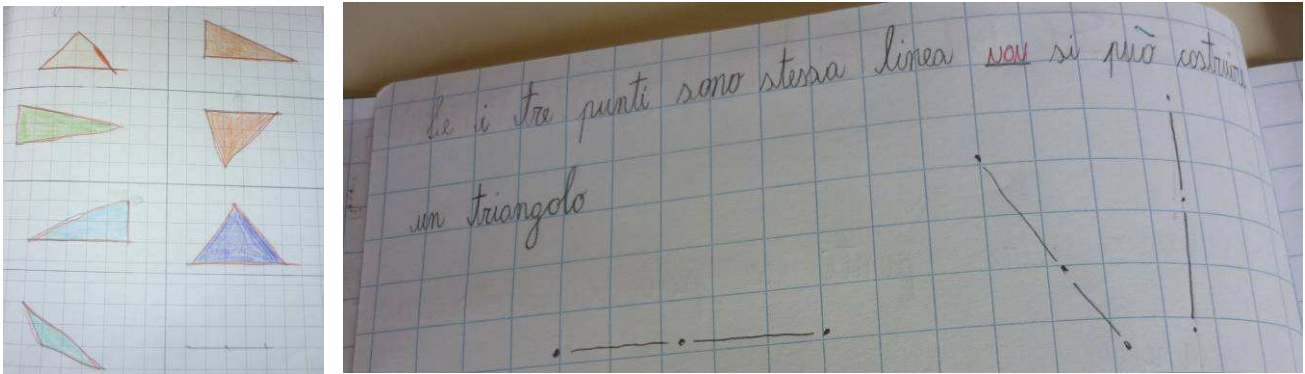 Se i tre punti sono stessa linea NON si può costruire
un triangolo